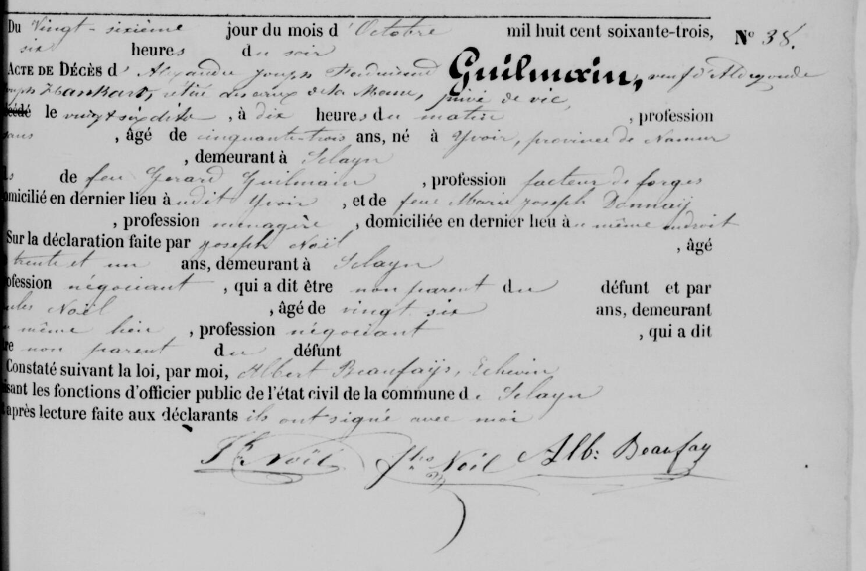 Du Vingt-sixième jour du mois d'Octobre mil huit cent soixante-trois, N° 38.
six heures du soir
Acte de Décès d'Alexandre Joseph Ferdinand Guilmain, veuf d'Aldegonde
Hankart, de la Meuse, privé de vie,
le vingt six dito, à dix heures du matin, profession
, âgé de cinquante-trois ans, né à Yvoir, province de Namur
, demeurant à Selayn
de feu Gerard Guilmain, profession facteur de forges
omicilié en dernier lieu à udit Yvoir, et de feue Marie Joseph Donnay
, profession ménagère, domiciliée en dernier lieu à u même endroit
Sur la déclaration faite par Joseph Noël, âgé
trente et un ans, demeurant à Selayn
ofession négociant, qui a dit être non parent du défunt et par
ules Noël, âgé de vingt six ans, demeurant
même lieu, profession négociant, qui a dit
re non parent du défunt
Constaté suivant la loi, par moi, Albert Beaufays, Echevin
isant les fonctions d'officier public de l'état civil de la commune de Selayn
après lecture faite aux déclarants ils ont signé avec moi
Jh Noël Jles Noël Alb: Beaufay